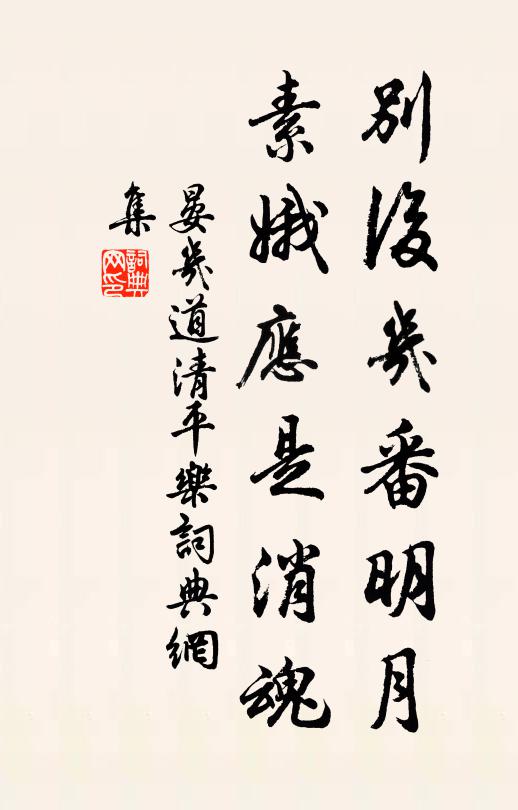 別後幾番明月
素娥應是消魂
晏幾道清平樂詞典網
集
詞典網印